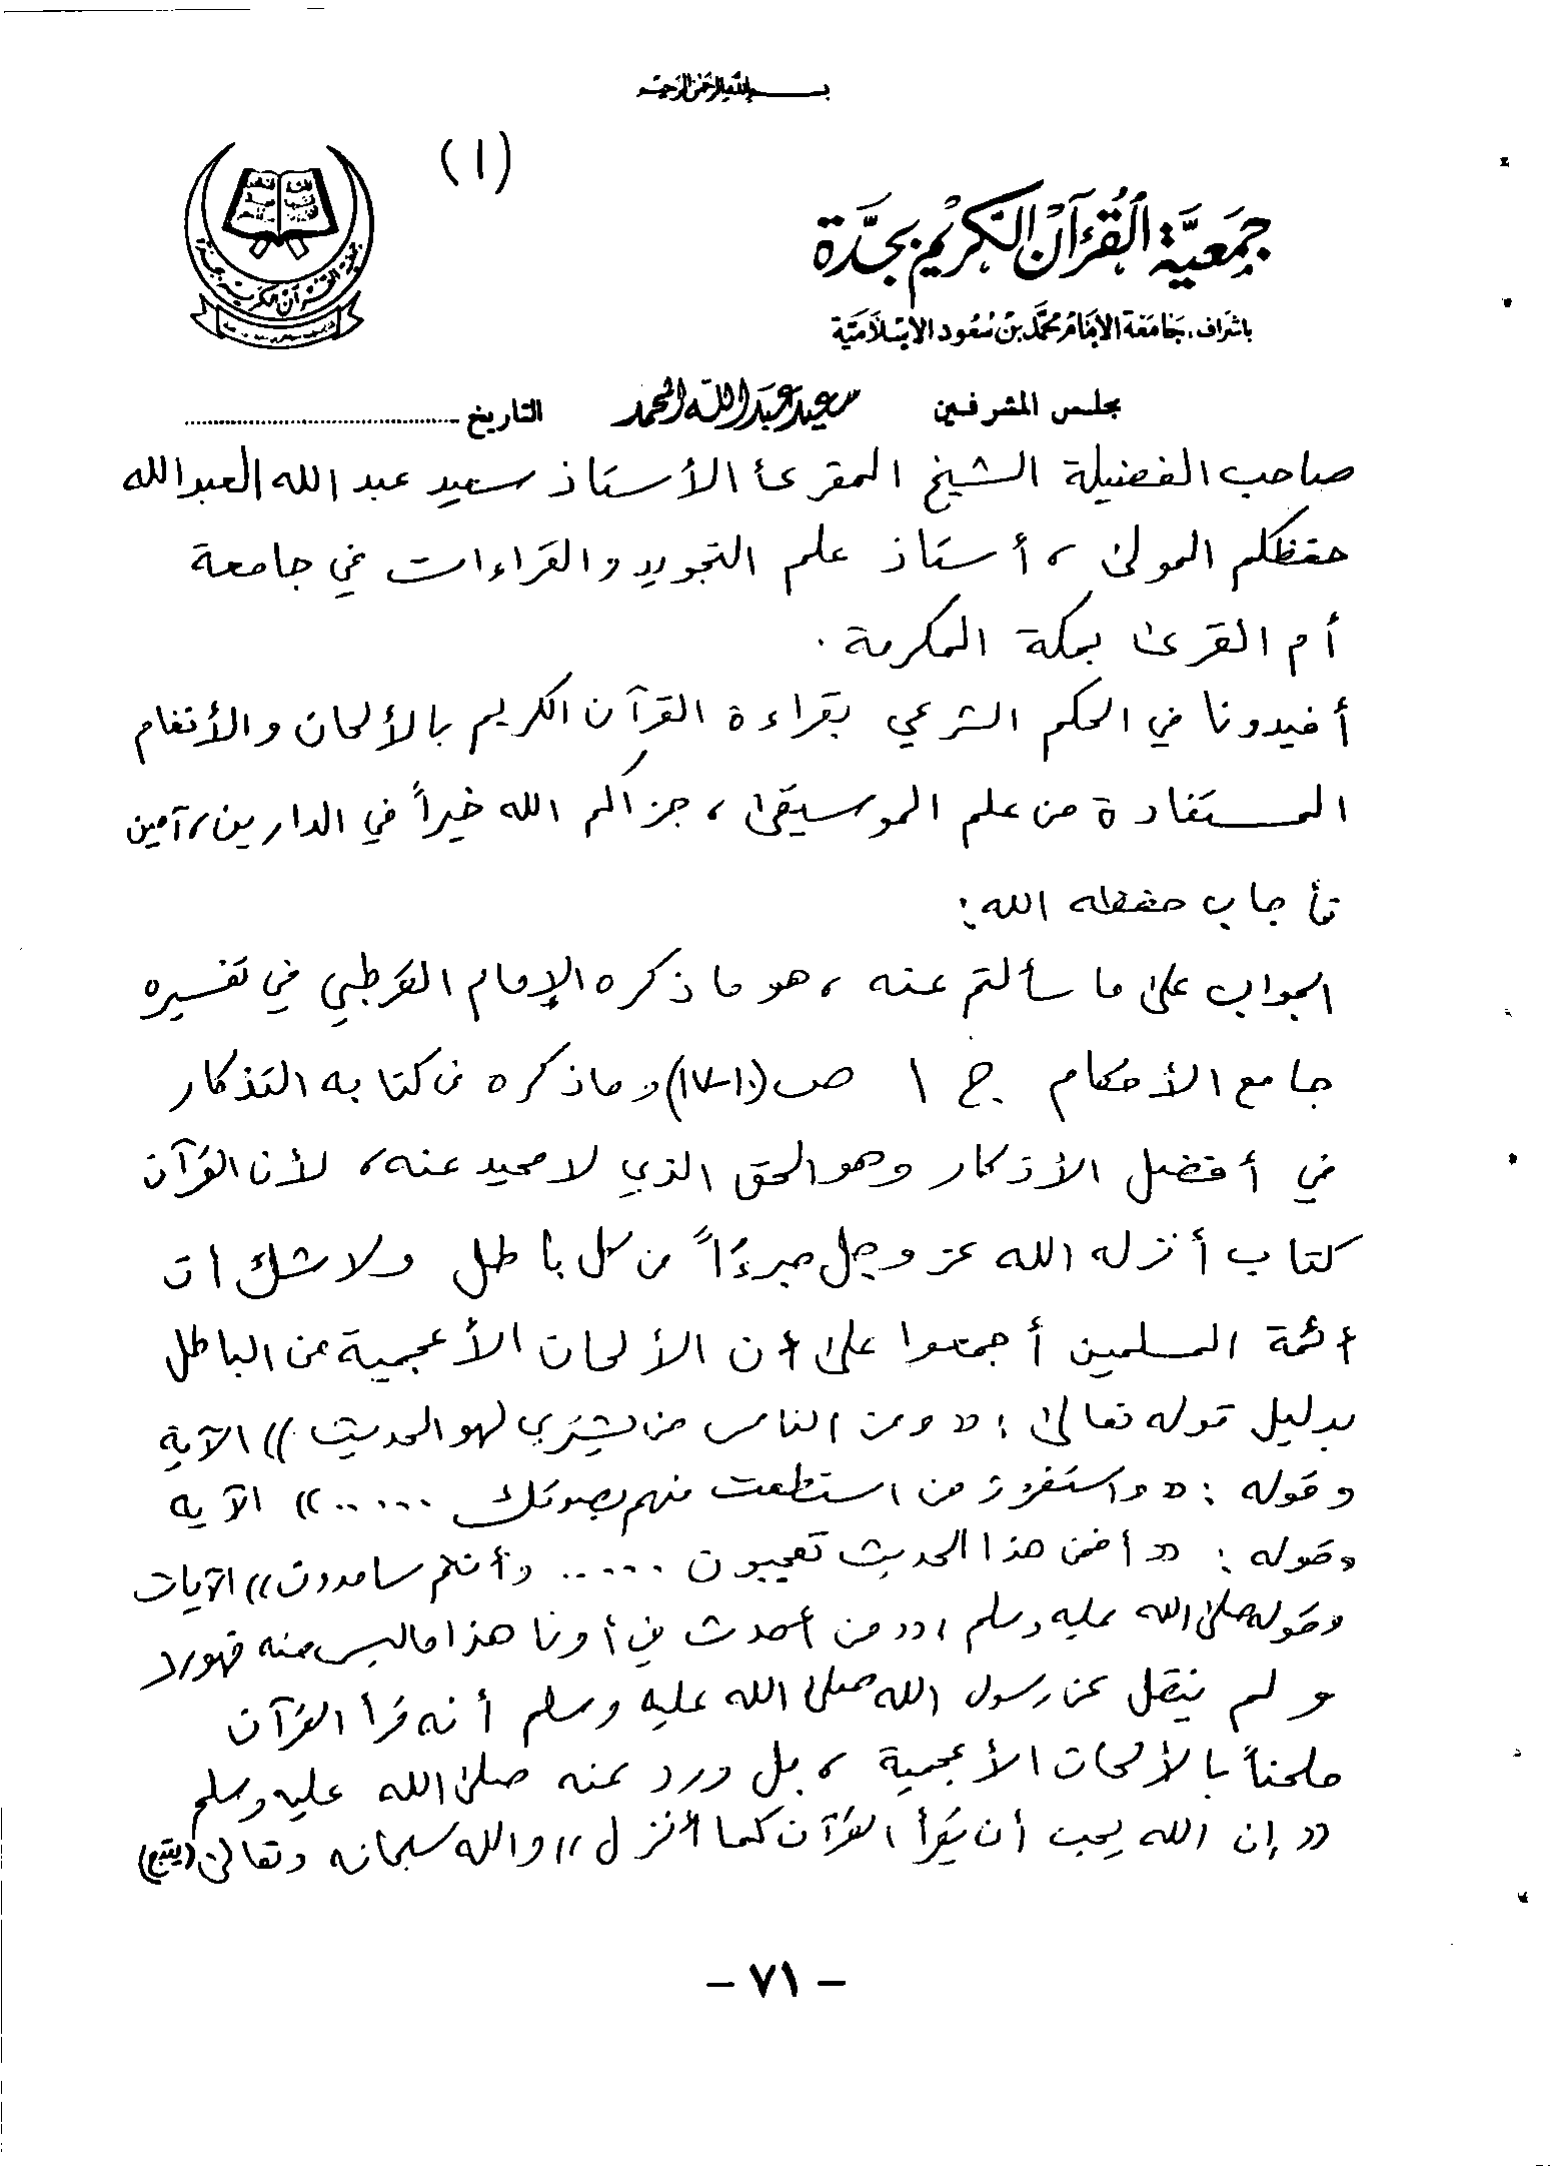 بسم الله الرحمن الرحيم
(١)
جَمعيَّة القُرآن الكَريْم بجَدَّة
باشراف، جَامعَة الإمَام محَمَّد بن سُعُود الإسْلَاميَّة
مجلس المشرفين سعيد عبد الله المحمد التاريخ
صاحب الفضيلة الشيخ المقرئ الأستاذ سعيد عبد الله العبد الله
حفظكم المولى ، أستاذ علم التجويد والقراءات في جامعة
أم القرى بمكة المكرمة .
أفيدونا في الحكم الشرعي بقراءة القرآن الكريم بالألحان والأنغام
المستفادة من علم الموسيقى ، جزاكم الله خيراً في الدارين ، آمين
فأجاب حفظه الله :
الجواب على ما سألتم عنه ، هو ما ذكره الإمام القرطبي في تفسيره
جامع الأحكام ج ١ ص (١٠-١٧) وما ذكره في كتابه التذكار
في أفضل الأذكار وهو الحق الذي لا محيد عنه ، لأن القرآن
كتاب أنزله الله عز وجل مبرءاً من كل باطل ولا شك أن
أئمة المسلمين أجمعوا على أن الألحان الأعجمية من الباطل
بدليل قوله تعالى : « ومن الناس من يشتري لهو الحديث » الآية
وقوله : « واستفزز من استطعت منهم بصوتك ..... » الآية
وقوله : « أفمن هذا الحديث تعجبون ..... وأنتم سامدون » الآيات
وقوله صلى الله عليه وسلم « من أحدث في أمرنا هذا ما ليس منه فهو رد
ولم ينقل عن رسول الله صلى الله عليه وسلم أنه قرأ القرآن
ملحناً بالألحان الأعجمية ، بل ورد عنه صلى الله عليه وسلم
« إن الله يحب أن يقرأ القرآن كما أنزل » والله سبحانه وتعالى (يتبع)
- ٧١ -